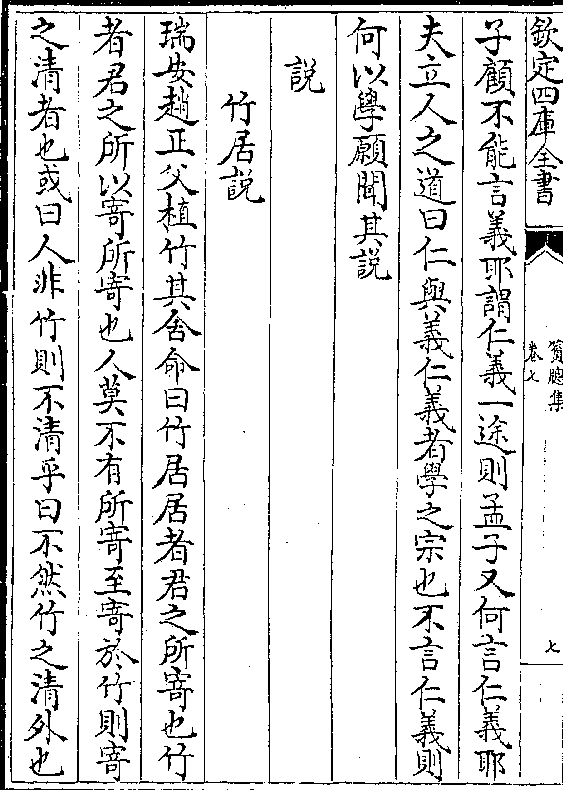 欽定四庫全書
賓䏓集
卷七
七
子顧不能言義耶謂仁義一途則孟子又何言仁義耶
夫立人之道曰仁與義仁義者學之宗也不言仁義則
何以學願聞其説
説
竹居説
瑞安趙正父植竹其舍命曰竹居居者君之所寄也竹
者君之所以寄所寄也人莫不有所寄至寄於竹則寄
之清者也或曰人非竹則不清乎曰不然竹之清外也